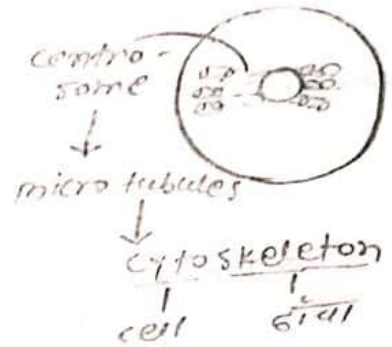 centro-
some
micro tubules
cytoskeleton
cell